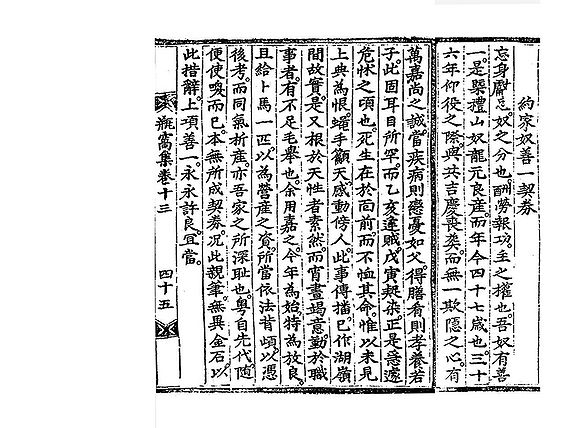 約家奴善一契券
忘身獻忠。奴之分也。酬勞報功。主之權也。吾奴有善
一。是槩禮山奴龍元良産。而年今四十七歲也。三十
六年仰役之際。與共吉慶喪矣。而無一欺隱之心。有
萬嘉尚之誠。當疾病則戀憂如父。得膳肴則孝養若
子。此固耳目所罕。而乙亥逢賊。戊寅染。正是急遽
危怵之頃也。死生在於面前。而不恤其命。惟以未見
上典為恨。蝇手籲天。感動傍人。此事傳播。已作湖嶺
間故實。是又根於天性者素然。而宵晝竭意。勤於職
事者。有不足毛舉也。余用嘉之。今年為始。特為放良。
且給卜馬一匹。以為營産之資。所當依法背頉。以憑
後考。而同氣析産。亦吾家之所深耻也。粤自先代。随
便使喚而已。本無所成契券。况此親筆。無異金石。以
此措辭。上項善一。永永許良。宜當。
瓶窩集卷十三
四十五